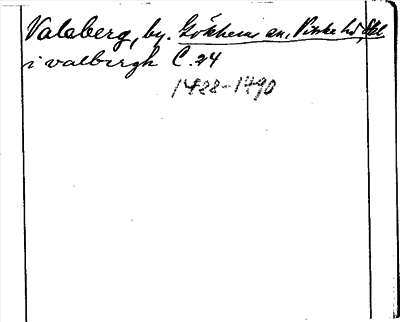 Valaberg, by. Gökhems sn, Vilske hd, Skl
i valbergh C.24
1488-1490